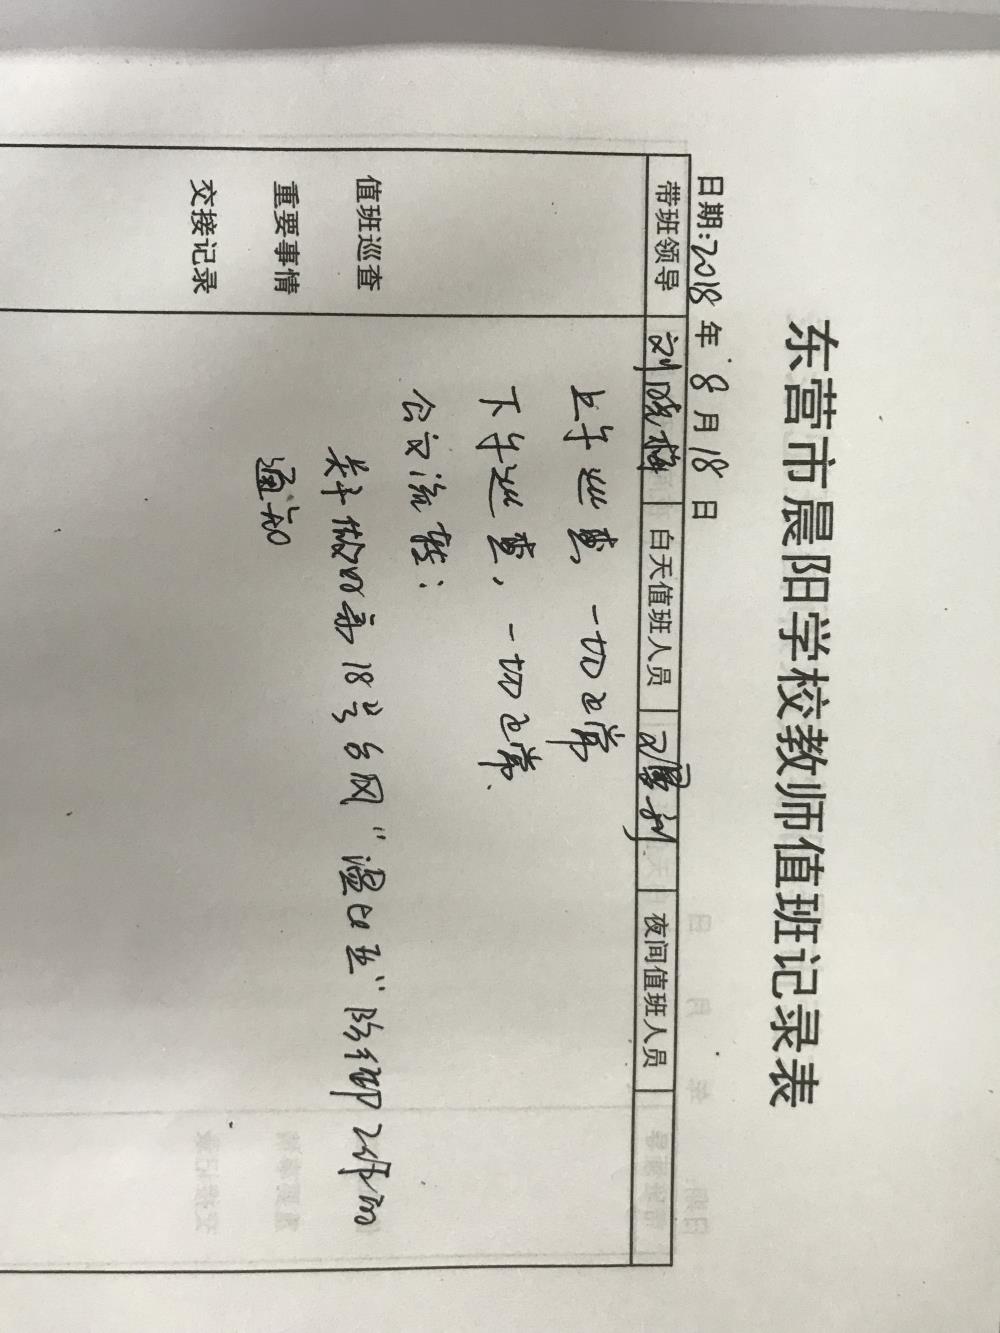 东营市晨阳学校教师值班记录表
日期:2018年8月18日
带班领导 刘晓梅 白天值班人员 夜间值班人员
值班巡查
重要事情
交接记录
上午巡查，一切正常
下午巡查，一切正常.
公文流转：
关于做好第18号台风“温比亚”防御工作的
通知